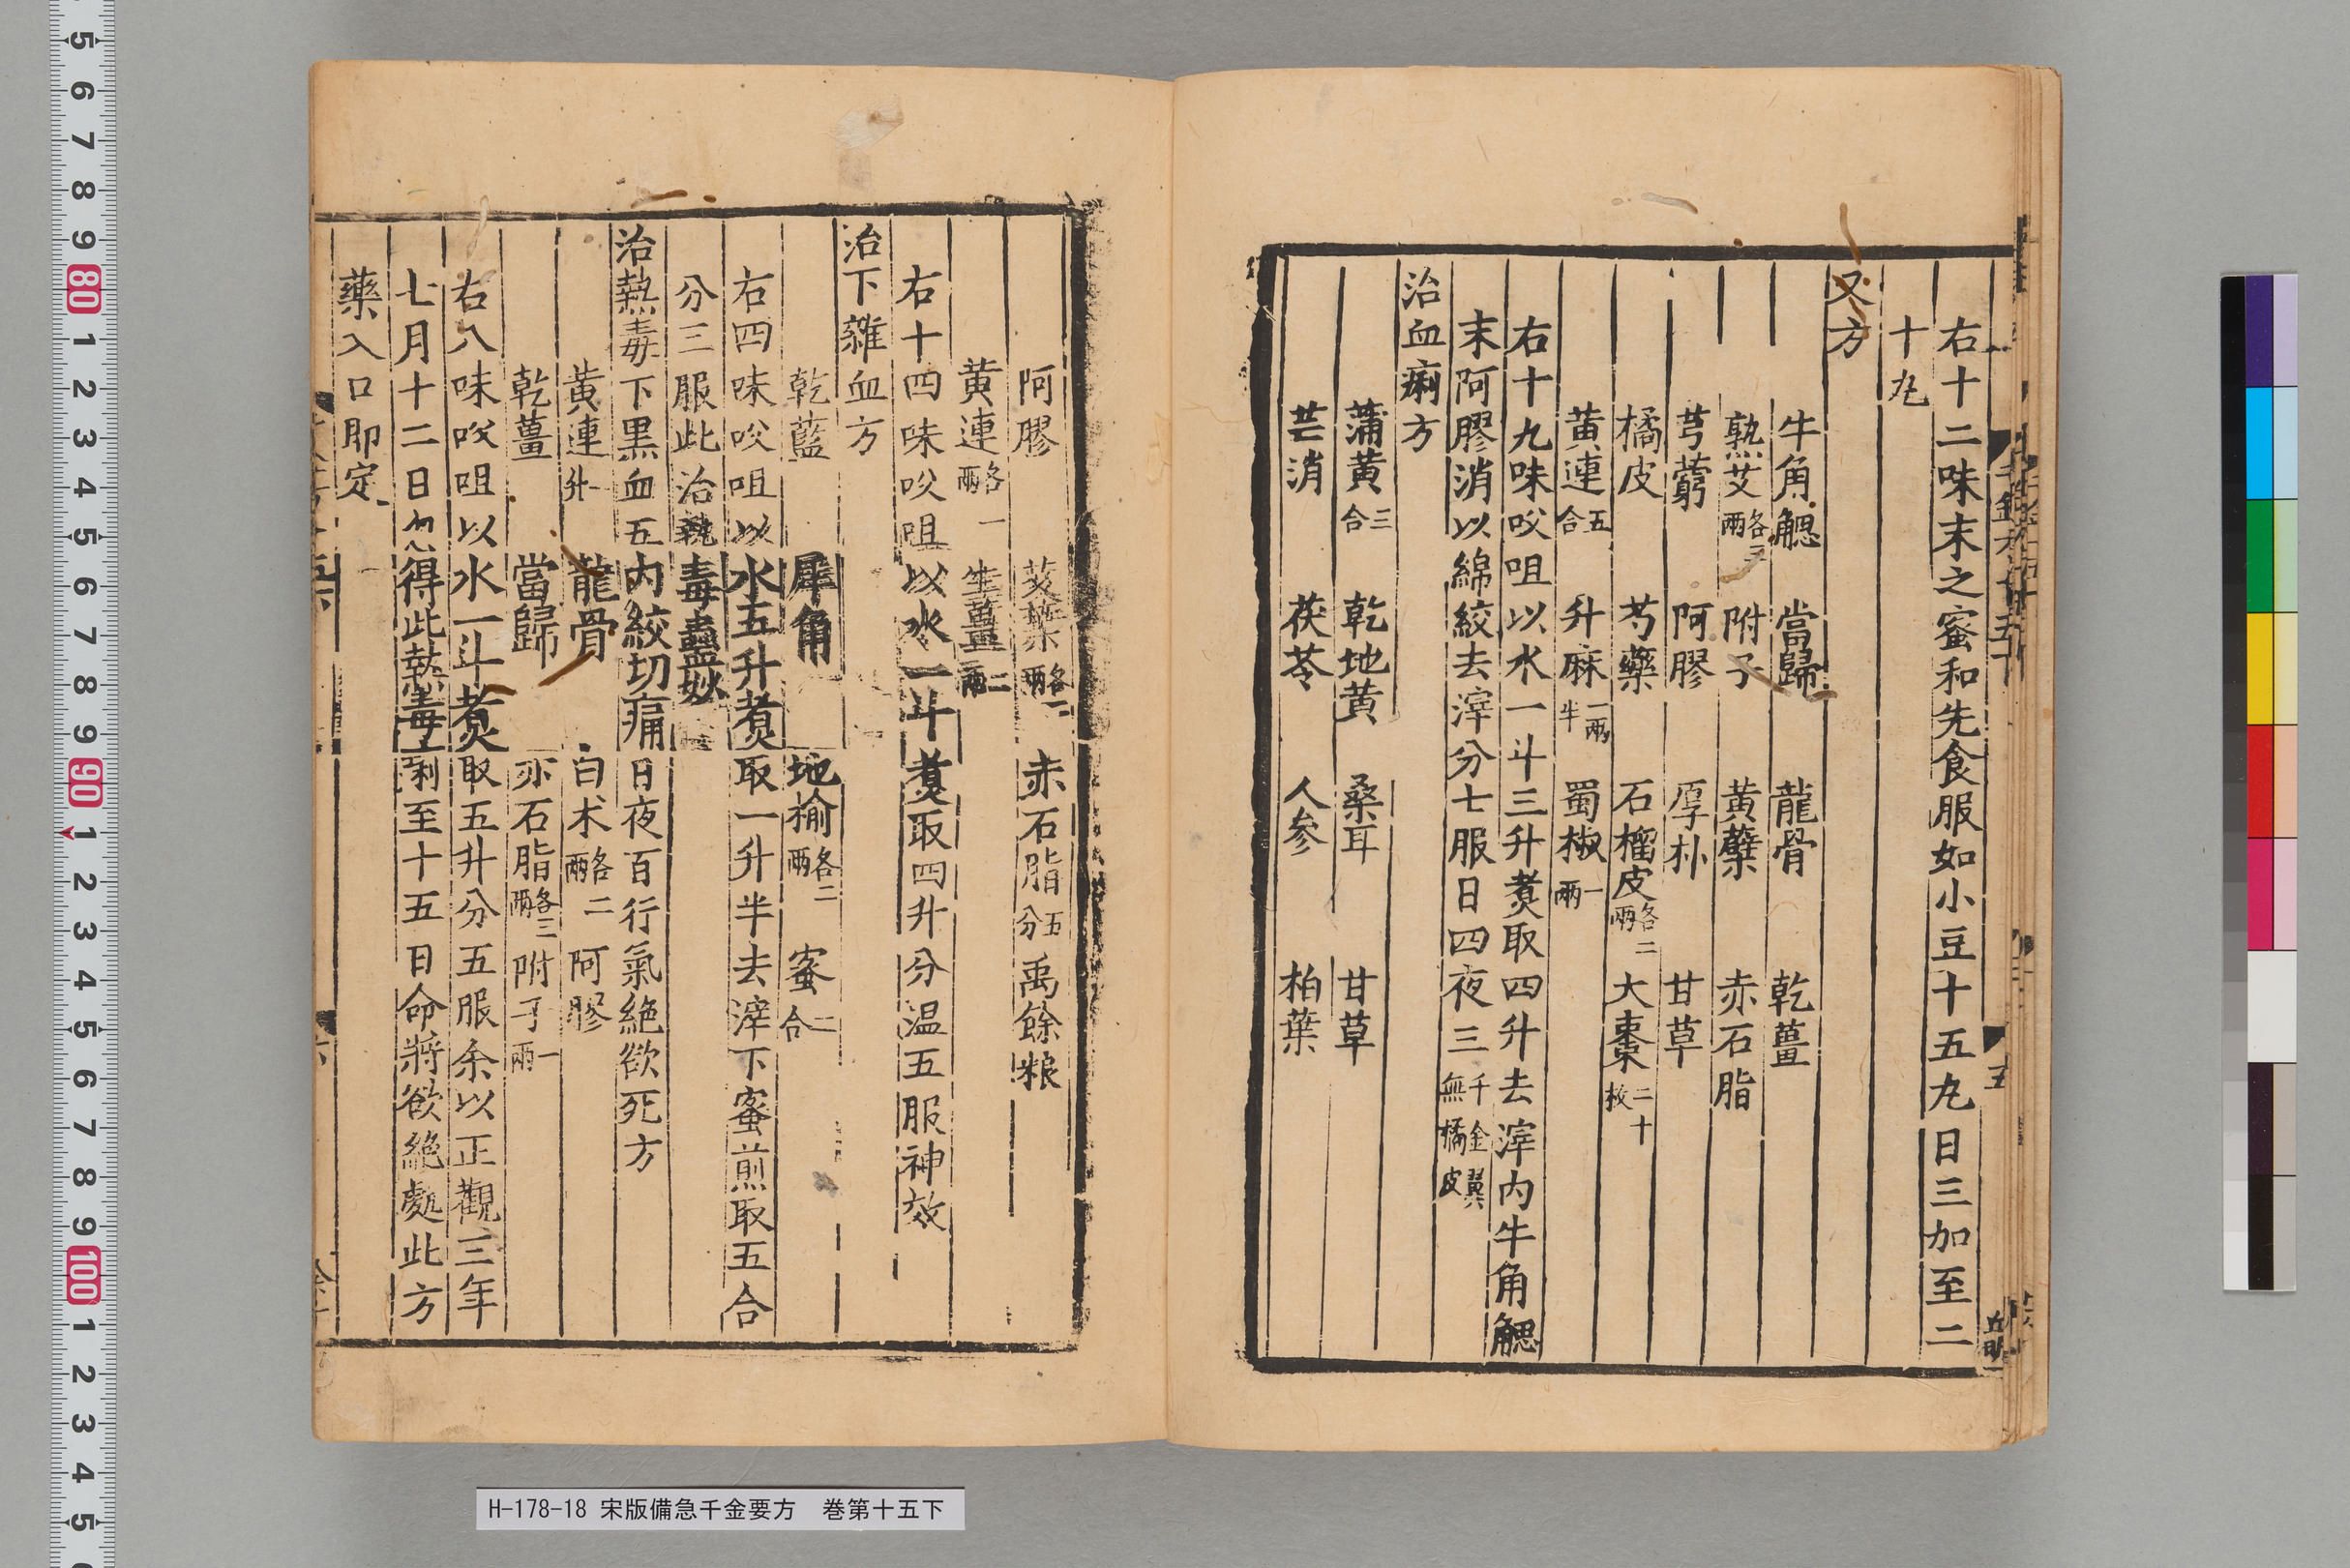 右十二味末之蜜和先食服如小豆十五丸日三加至二
十丸
又方
牛角䚡 當歸 龍骨 乾薑
熟艾各三兩 附子 黃蘗 赤石脂
芎藭 阿膠 厚朴 甘草
橘皮 芍藥 石榴皮各二兩 大棗二十枚
黃連五合 升麻一兩半 蜀椒一兩
右十九味㕮咀以水一斗三升煑取四升去滓內牛角䚡
末阿膠消以綿絞去滓分七服日四夜三千金翼無橘皮
治血痢方
蒲黃三合 乾地黃 桑耳 甘草
芒消 茯苓 人參 柏葉
阿膠 艾葉各一兩 赤石脂五分 禹餘粮
黃連各一兩 生薑二兩
右十四味㕮咀以水一斗煑取四升分溫五服神效
治下雜血方
乾藍 犀角 地榆各二兩 蜜二合
右四味㕮咀以水五升煑取一升半去滓下蜜煎取五合
分三服此治熱毒蠱妙
治熱毒下黑血五內絞切痛日夜百行氣絕欲死方
黃連一升 龍骨 白朮各二兩 阿膠
乾薑 當歸 赤石脂各三兩 附子一兩
右八味㕮咀以水一斗煑取五升分五服余以正觀三年
七月十二日忽得此熱毒痢至十五日命將欲絕處此方
藥入口即定
H-178-18 宋版備急千金要方 巻第十五下